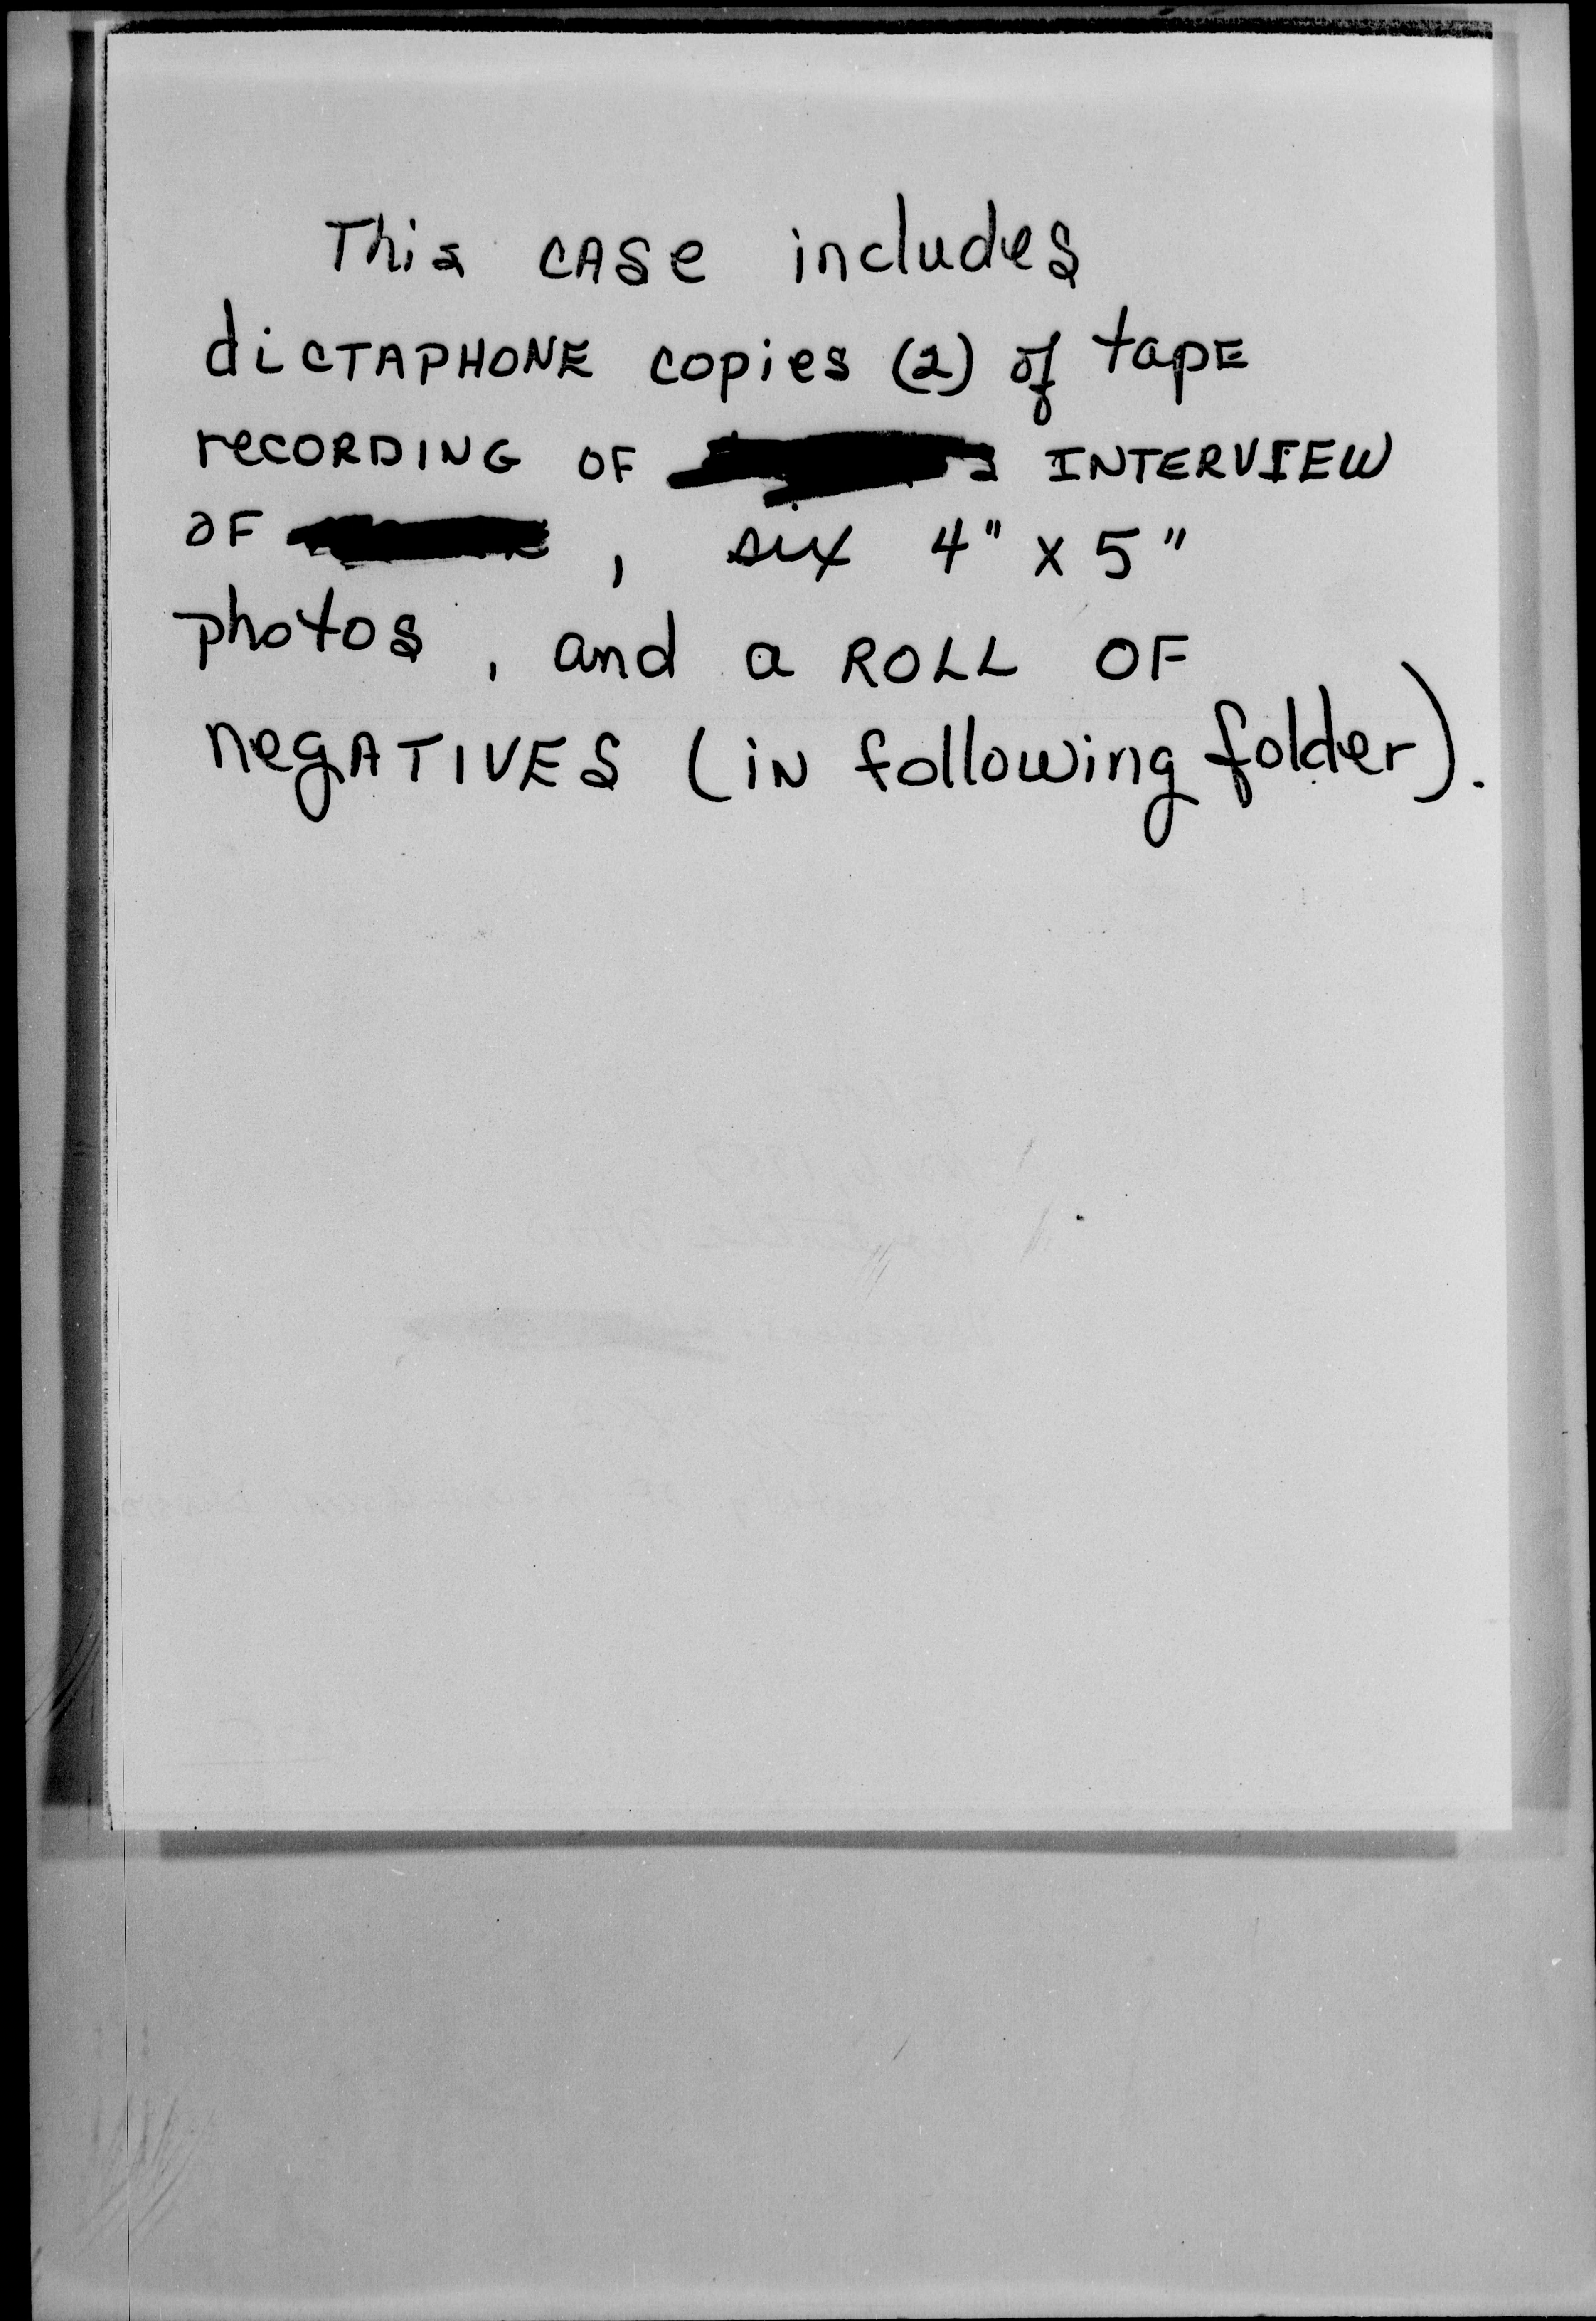 This CASe includes
dicTAPHONE copies (2) of tapE
recORDING OF INTERVIEW
OF , six 4" x 5"
photos, and a ROLL OF
negATIVES (iN following folder).